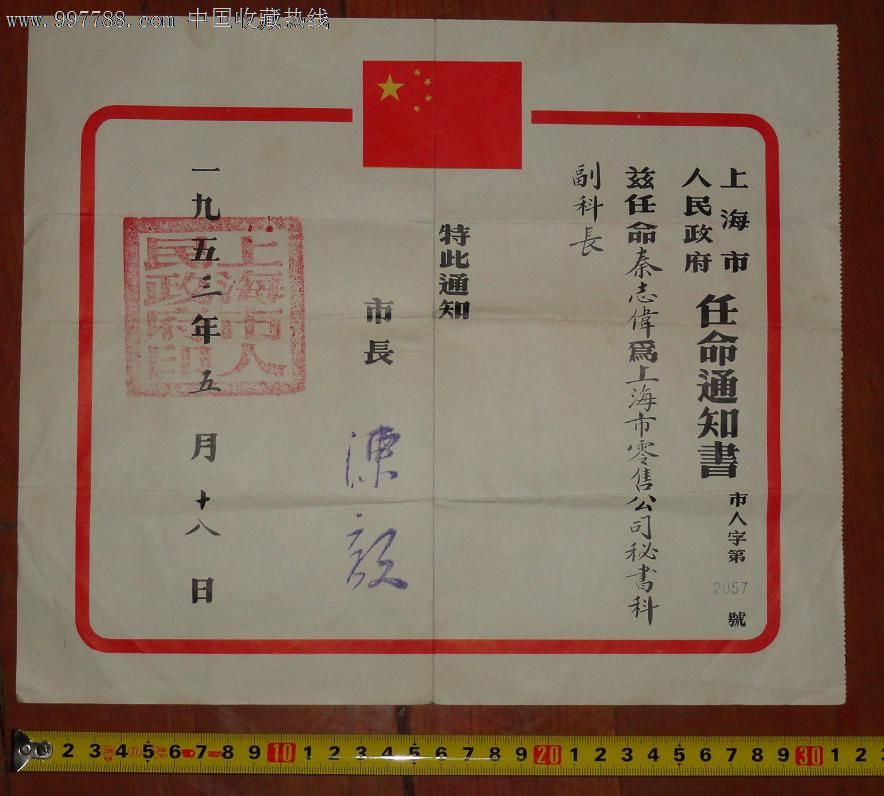 www.997788.com 中国收藏热线
上海市
人民政府
任命通知書
市人字第2057號
茲任命秦志偉爲上海市零售公司秘書科
副科長
特此通知
市長
陳毅
一九五三年五月十八日
上海市人
民政府印
2 3 4 5 6 7 8 9 10 1 2 3 4 5 6 7 8 9 20 1 2 3 4 5 6 7 8 9 30 1 2 3